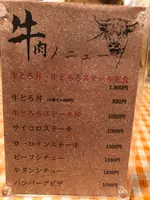 牛肉メニュー
牛とろ丼・牛とろろステーキ定食
1,900円
牛とろ丼 880円
牛とろステーキ丼 1050円
サイコロステーキ 1000円
サーロインステーキ
ビーフシチュー 1300円
牛タンシチュー 1800円
ハンバーグピザ 1000円